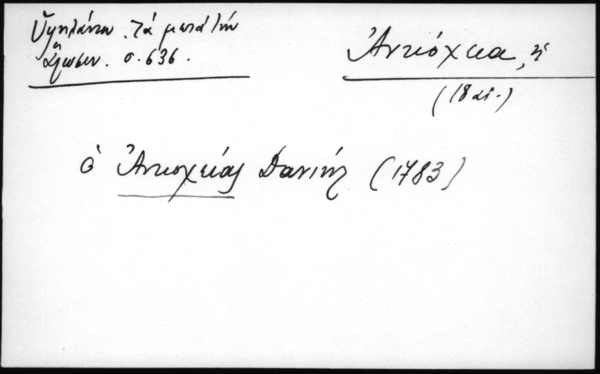 Ὑψηλάντου. Τὰ μετὰ τὴν
ἅλωσιν. σ. 636.
Ἀντιόχεια, ἡ
(18 αἰ.)
ὁ Ἀντιοχείας Δανιήλ (1783)